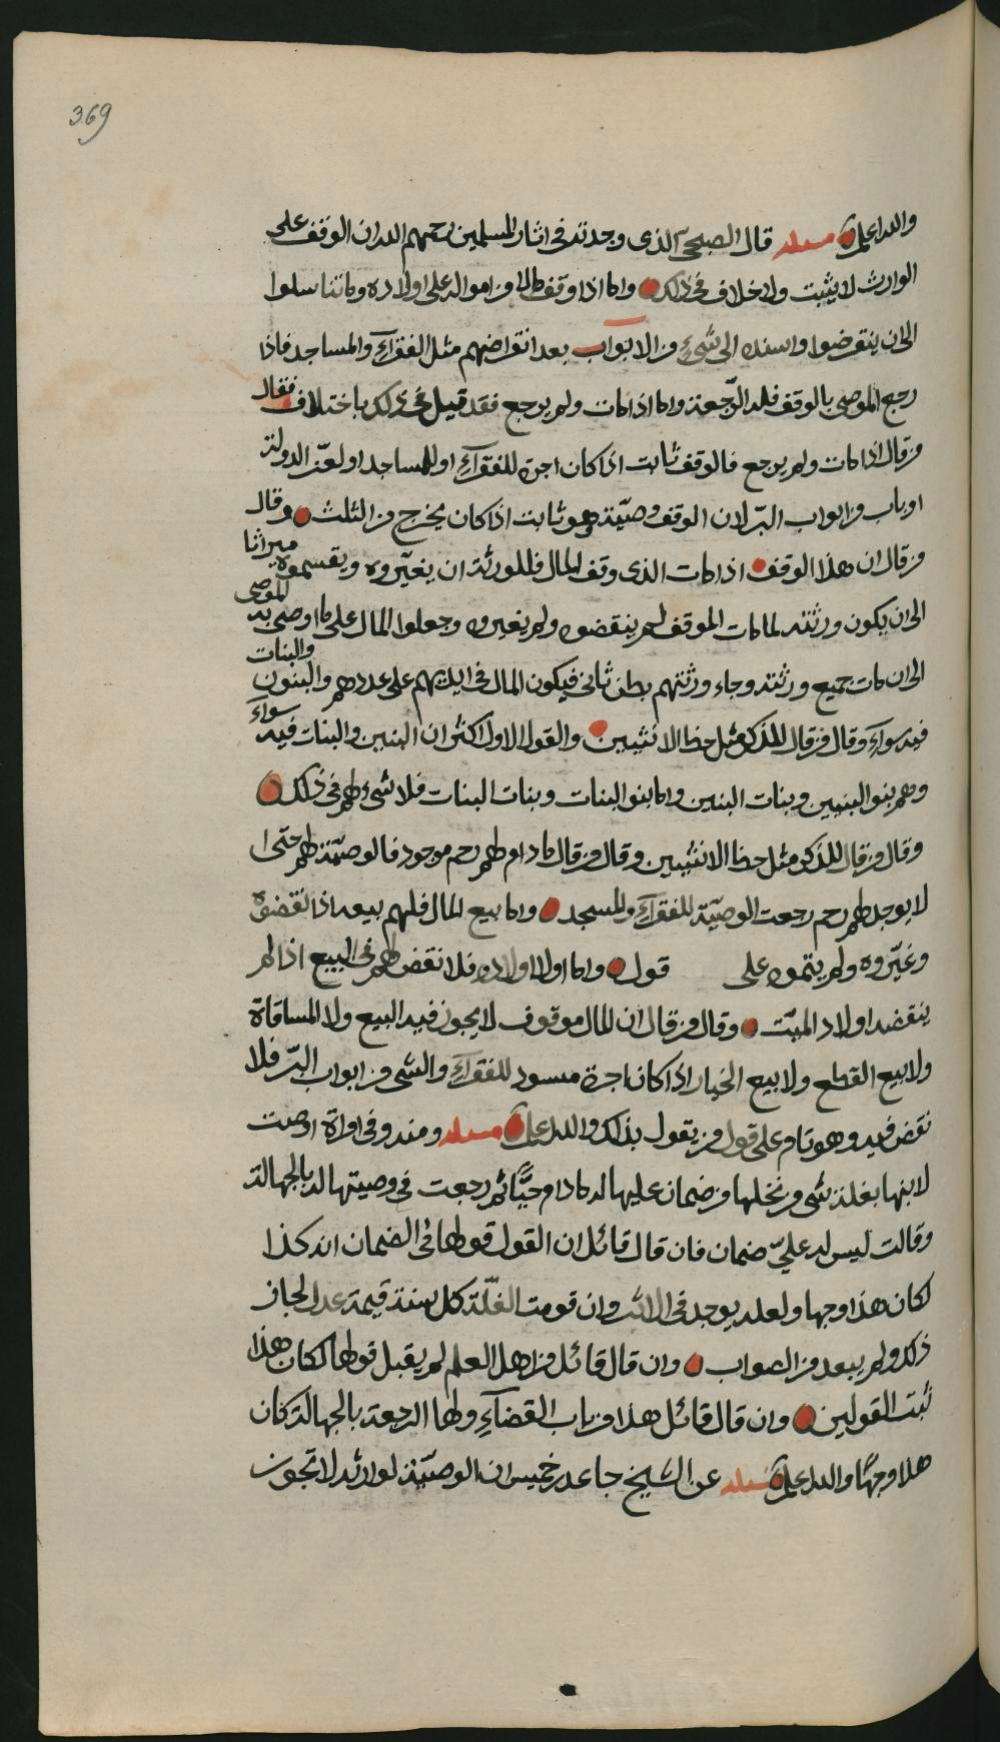 369
والله اعلم مسئلة قال الصبحي الذي وجدته في اثار المسلمين رحمهم الله ان الوقف على
الوارث لا يثبت ولا خلاف في ذلك واما اذا وقف مالا من امواله على اولاده وما تناسلوا
الى ان ينقرضوا واسنده الى شيء من الابواب بعد انقراضهم مثل الفقرآء والمساجد فاذا
رجع الموصي بالوقف فله الرّجعة واما اذا مات ولم يرجع فقد قيل في ذلك باختلاف فقال
من قال اذا مات ولم يرجع فالوقف ثابت اذا كان اجره للفقرآء او للمساجد او لعز الدولة
او باب من ابواب البرّ لان الوقف وصيّة وهو ثابت اذا كان يخرج من الثلث وقال
من قال ان هذا الوقف اذا مات الذي وقف المال فللورثة ان يغيّروه ويقسموه ميراثا
الى ان يكون ورثته لما مات الموقف لم ينقضوه ولم يغيروه وجعلوا المال على ما اوصى به الموصي
الى ان مات جميع ورثته وجاء ورثتهم بطن ثاني فيكون المال في ايديهم على عددهم والبنون والبنات
فيه سوآء وقال من قال للذكر مثل حظ الانثيين والقول الاول اكثر ان البنين والبنات فيه سوآء
وهم بنو البنين وبنات البنين واما بنو البنات وبنات البنات فلا شيء لهم في ذلك
وقال من قال للذكر مثل حظ الانثيين وقال من قال ما دام لهم رحم موجود فالوصيّة لهم حتى
لا يوجد لهم رحم رجعت الوصيّة للفقرآء والمسجد واما بيع المال فلهم بيعه اذا نقضوه
وغيّروه ولم يتموه على قول واما اولاد اولاده فلا نقض لهم في البيع اذا لم
ينقضه اولاد الميّت وقال من قال ان المال موقوف لا يجوز فيه البيع ولا المساقاة
ولا بيع القطع ولا بيع الخيار اذا كان اجره للفقرآء والشي من ابواب البرّ فلا
نقض فيه وهو تام على قول من يقول بذلك والله اعلم مسئلة ومنه وفي امراة اوصت
لابنها بغلة شي من نخلها من ضمان عليها له ما دام حيًّا ثم رجعت في وصيتها له بالجهالة
وقالت ليس له عليّ ضمان فان قال قائل ان القول قولها في الضمان انه كذا
لكان هذا وجها ولعله يوجد في الاثر وان قومت الغلّة كل سنة قيمة عدل لجاز
ذلك ولم يبعد من الصواب وان قال قائل من اهل العلم لم يقبل قولها لكان هذا
ثبت القولين وان قال قائل هذا من باب القضآء ولها الرجعة بالجهالة كان
هذا وجهًا والله اعلم مسئلة عن الشيخ جاعد بن خميس ان الوصيّة لوارثه لا تجوز